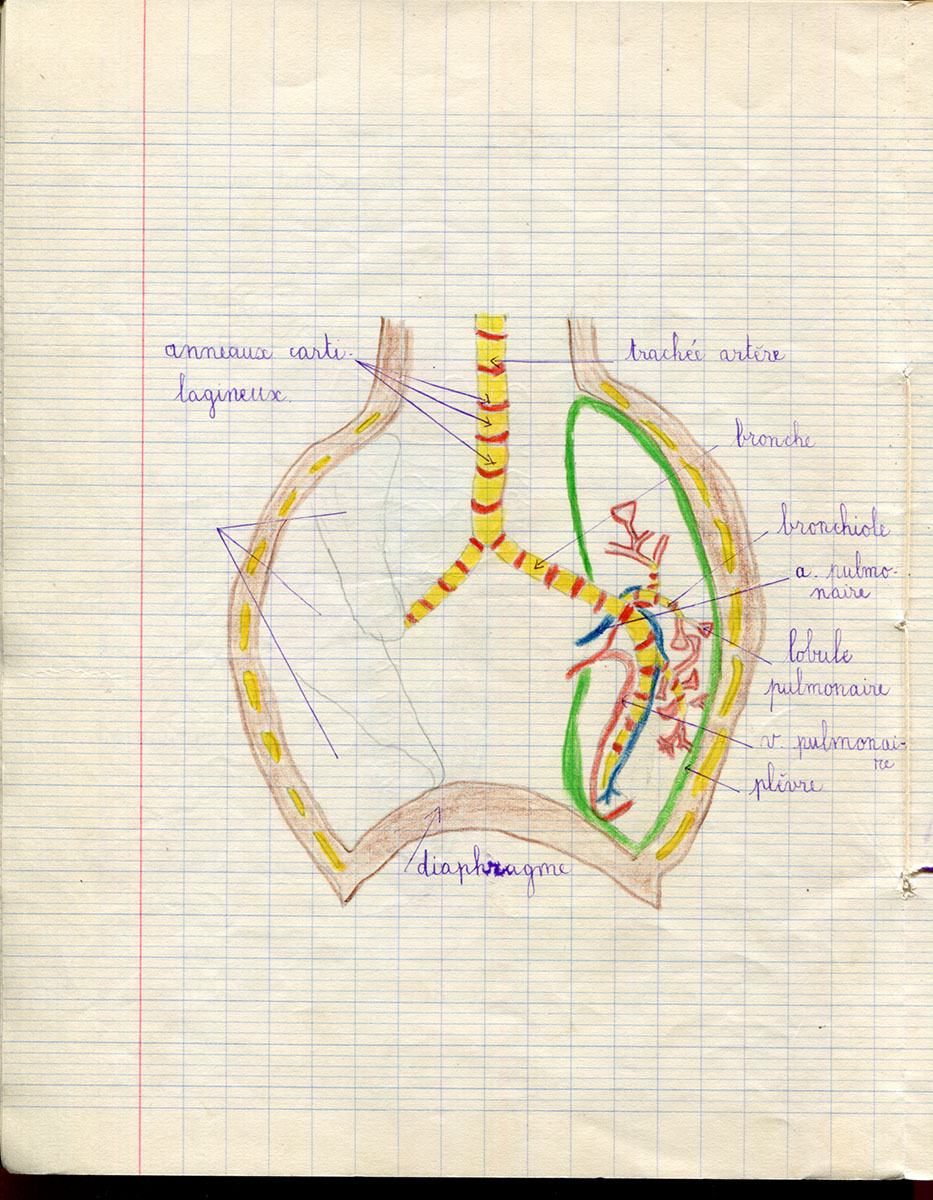 anneaux carti-
lagineux.
trachée artère
bronche
bronchiole
a. pulmo-
naire
lobule
pulmonaire
v. pulmonai-
re
plèvre
diaphragme